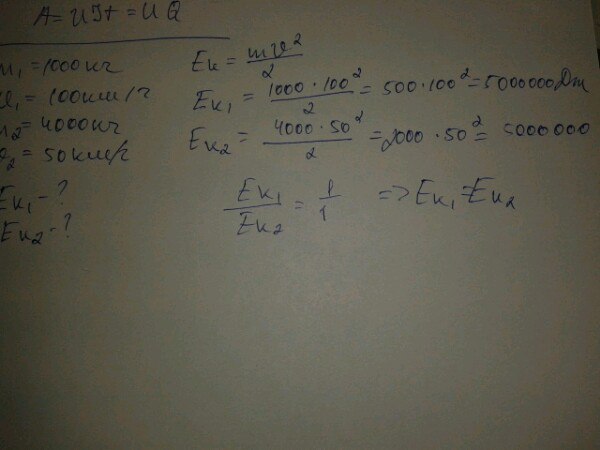 A = UIt = UQ
m₁ = 1000кг
υ₁ = 100км/ч
m₂ = 4000кг
υ₂ = 50км/ч
Eк₁ - ?
Eк₂ - ?
Eк = mυ²/2
Eк₁ = 1000·100²/2 = 500·100² = 5000000Dж
Eк₂ = 4000·50²/2 = 2000·50² = 5000000
Eк₁/Eк₂ = 1/1 => Eк₁ = Eк₂